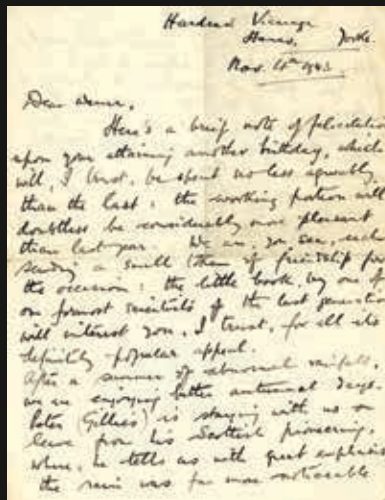 Vicarage
Hawes, Yorks.
Nov. 4th 1943.
Dear
Here's a brief note of felicitation
upon your attaining another birthday, which
will, I trust, be spent no less agreeably
than the last: the working portion will
doubtless be considerably more pleasant
than last year. We are, you see, each
sending a small token of friendship for
the occasion: the little book, by one of
our foremost scientists of the last generation
will interest you, I trust, for all its
definitely popular appeal.
After a summer of abnormal rainfall,
we are enjoying better autumnal days.
Peter (Gillies) is staying with us on
leave from his Scottish pioneering,
where, he tells us with great emphasis
the rain was far more noticeable